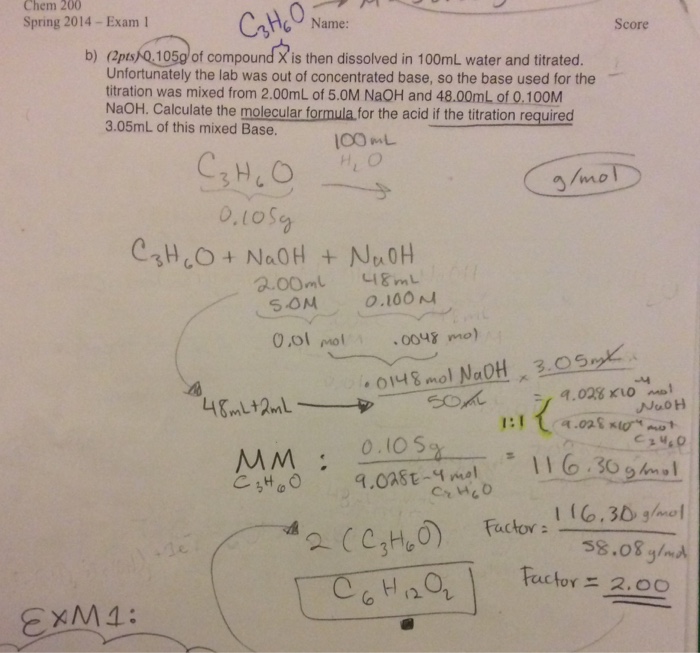 Chem 200
Spring 2014 – Exam 1
C₃H₆O
Name:
Score
b) (2pts) 0.105g of compound X is then dissolved in 100mL water and titrated.
Unfortunately the lab was out of concentrated base, so the base used for the
titration was mixed from 2.00mL of 5.0M NaOH and 48.00mL of 0.100M
NaOH. Calculate the molecular formula for the acid if the titration required
3.05mL of this mixed Base.
100mL
C₃H₆O H₂O
g/mol
0.105g
C₃H₆O + NaOH + NaOH
2.00mL 48mL
5.0M 0.100M
0.01 mol .0048 mol
.0148 mol NaOH × 3.05mL
48mL+2mL 50mL = 9.028 x10⁻⁴ mol NaOH
1:1 { 9.028 x10⁻⁴ mol C₃H₆O
MM C₃H₆O : 0.105g
9.028E-4 mol C₃H₆O = 116.30 g/mol
2 (C₃H₆O) Factor = 116.30 g/mol
58.08 g/mol
C₆H₁₂O₂ Factor = 2.00
EXM1: